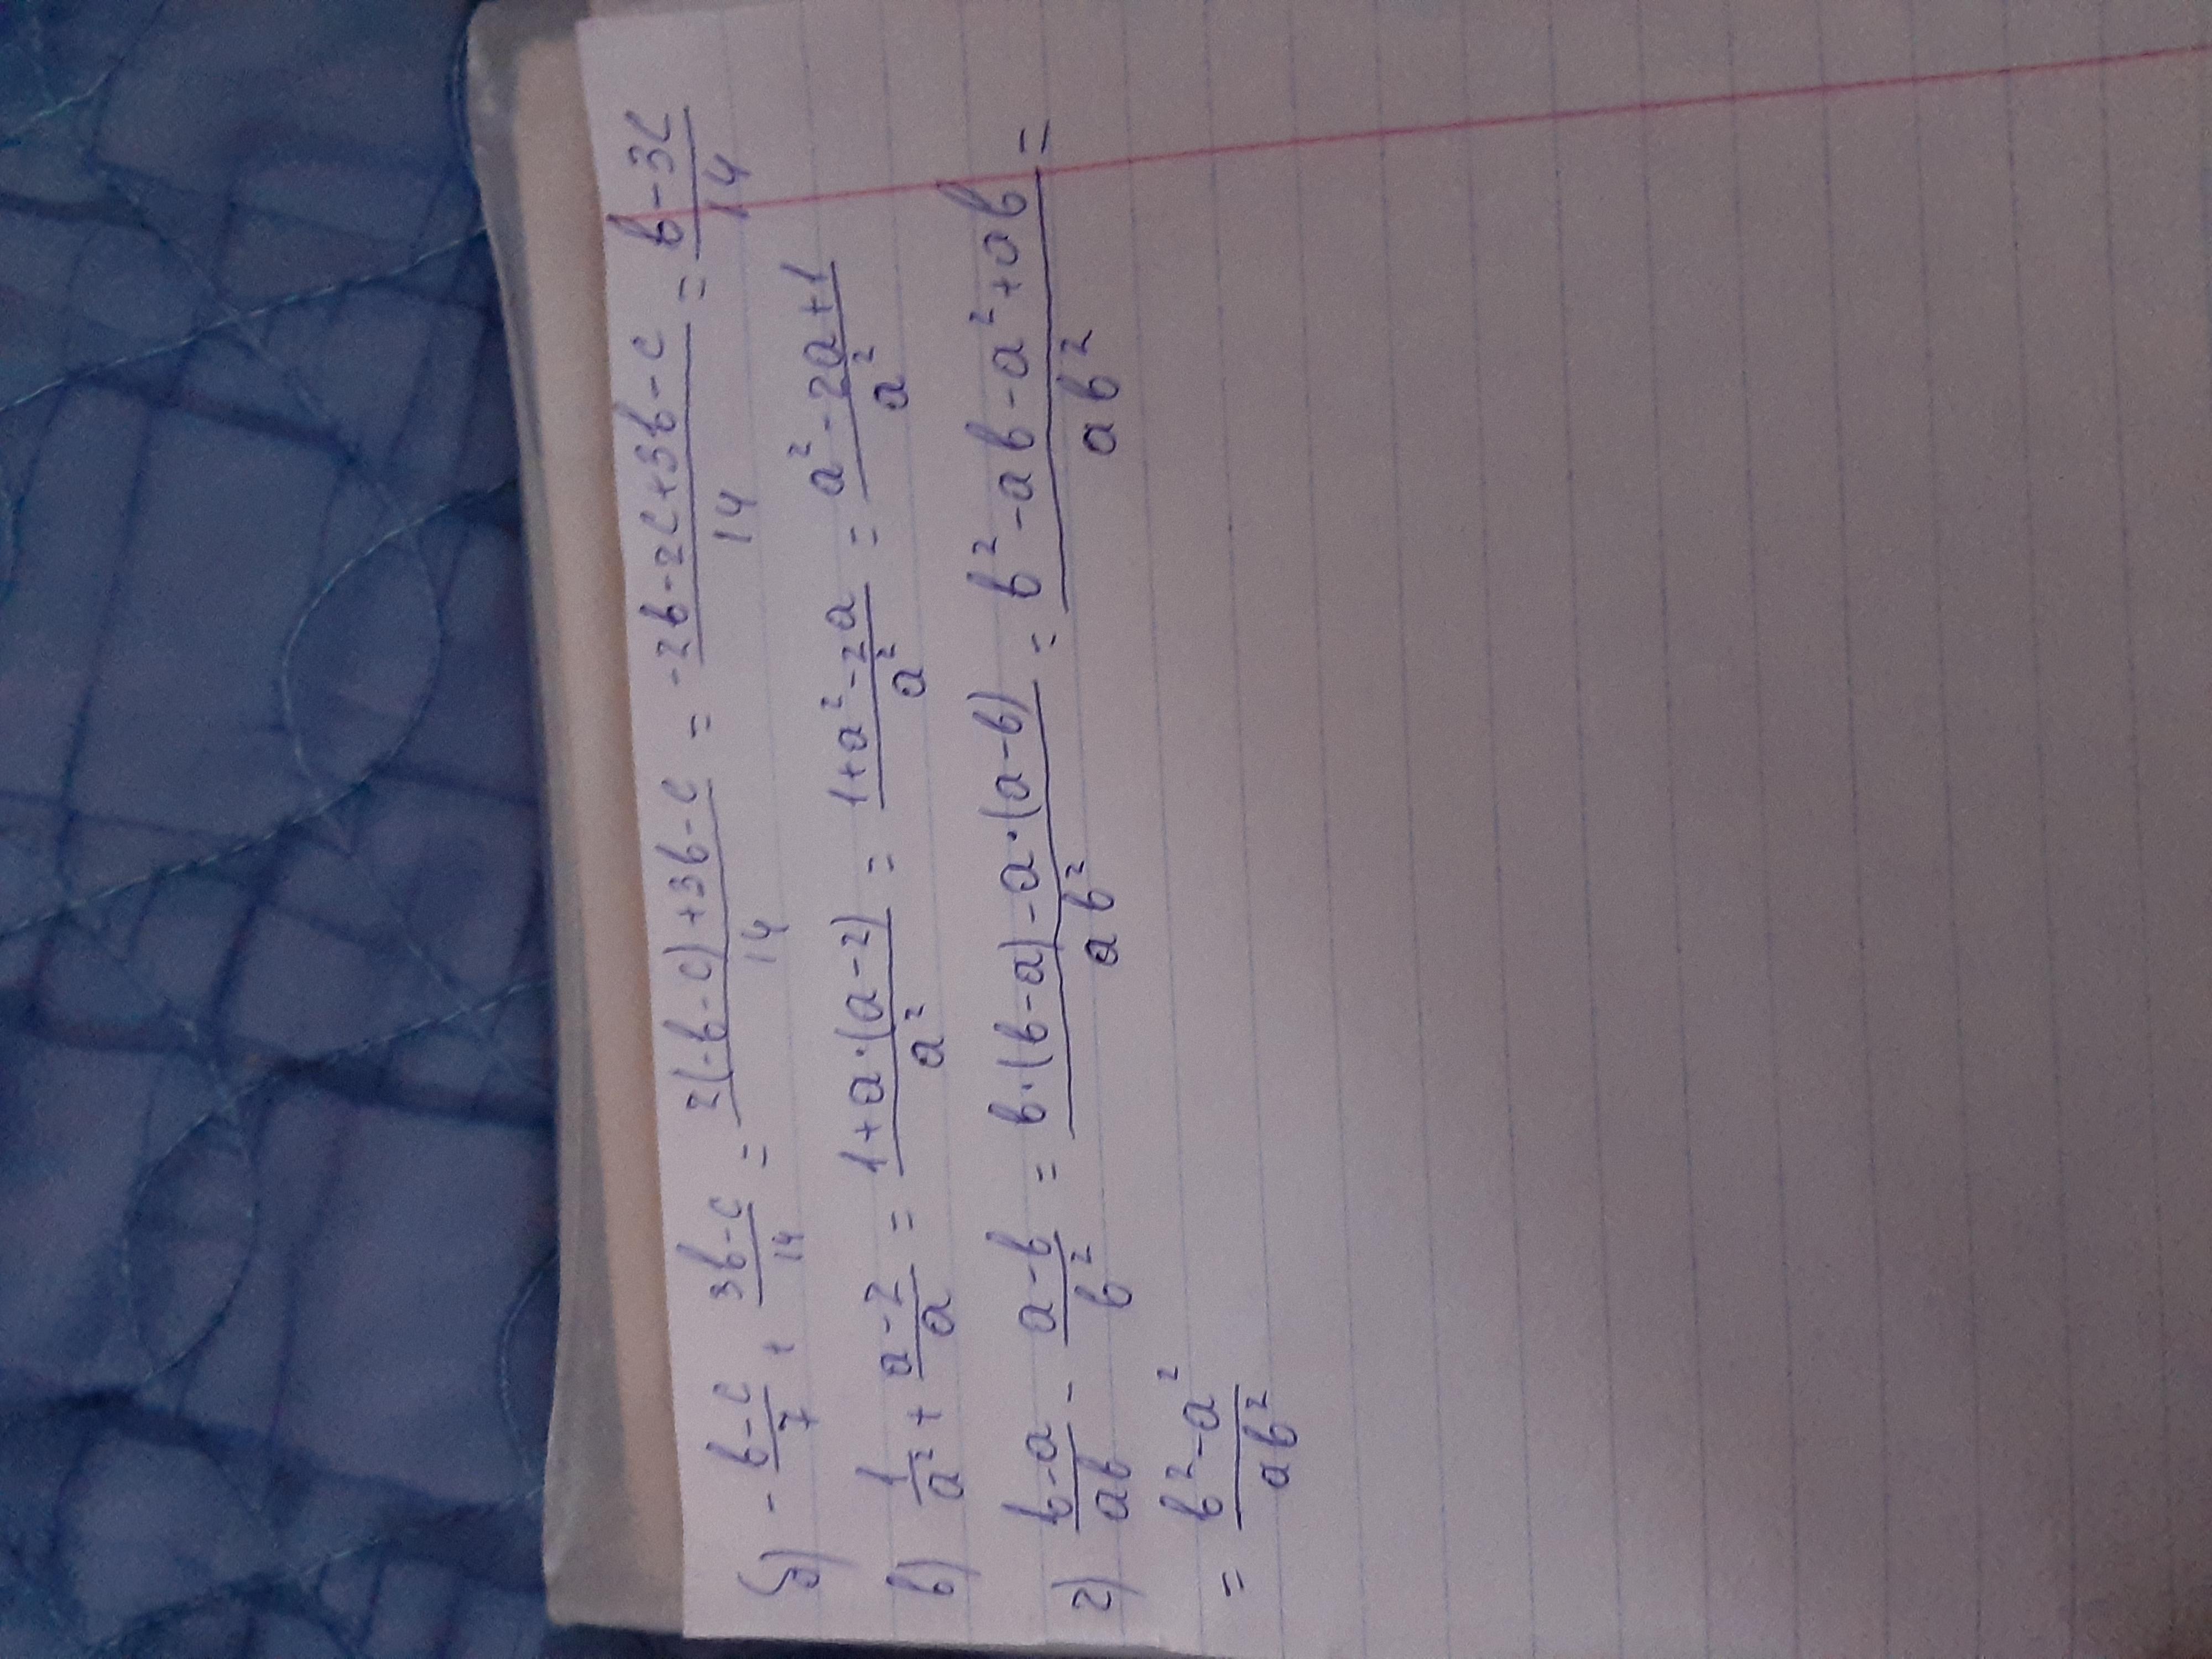 б) - (b-c)/7 + (3b-c)/14 = (2(-b-c)+3b-c)/14 = (-2b-2c+3b-c)/14 = (b-3c)/14
в) 1/a² + (a-2)/a = (1+a·(a-2))/a² = (1+a²-2a)/a² = (a²-2a+1)/a²
г) (b-a)/ab - (a-b)/b² = (b·(b-a)-a·(a-b))/ab² = (b²-ab-a²+ab)/ab² =
= (b²-a²)/ab²